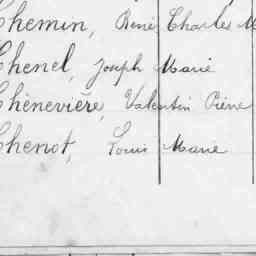 Chemin, René Charles M
Chenel, Joseph Marie
Chènevière, Valentin Pierre
Chenot, Louis Marie